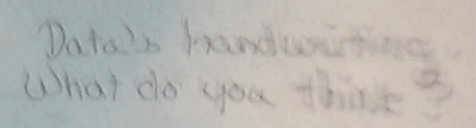 Data's handwriting.
What do you think?